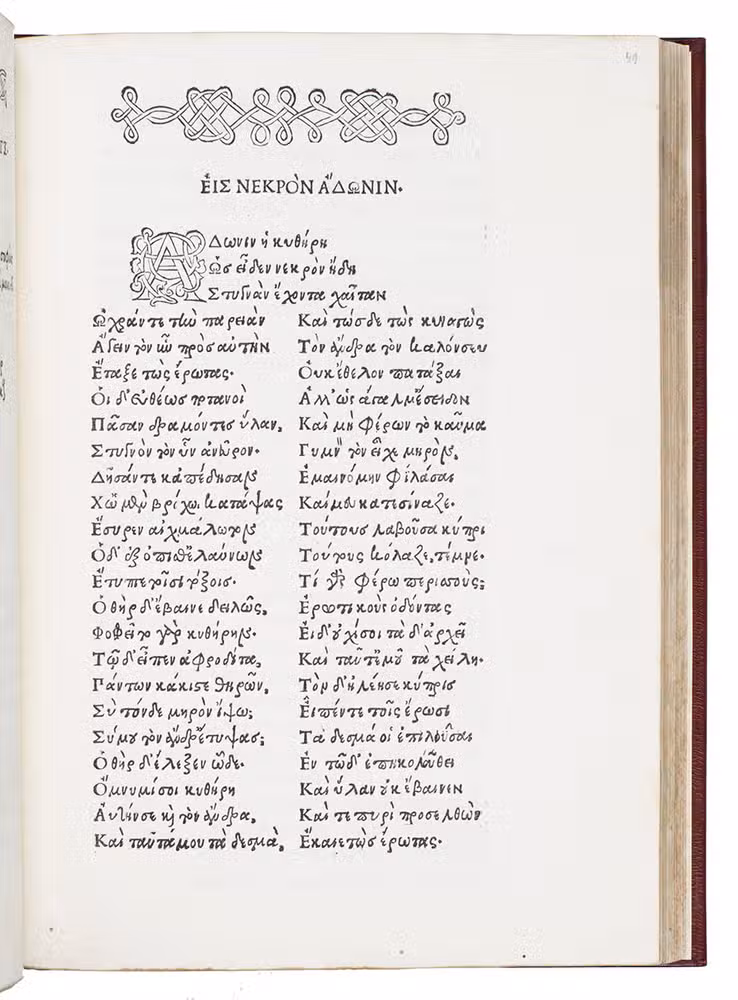 ἘΙΣ ΝΕΚΡῸΝ ἌΔΩΝΙΝ.
ΑΔωνιν ἡ κυθήρη
Ὡς εἶδεν νεκρὸν ἤδη
Στυγνὰν ἔχοντα χαίταν
Ὠχράντε τὴν παρειὰν
Ἄγειν τὸν ὗν πρὸς αὐτὴν
Ἔταξε τὼς ἔρωτας·
Οἱ δ'εὐθέως ποτανοὶ
Πᾶσαν δραμόντες ὕλαν,
Στυγνὸν τὸν ὗν ἀνῶρον·
Δῆσάντε κἀπέδησαν
Χὠ μὲν βρόχῳ κατάψας
Ἔσυρεν αἰχμάλωτον
Ὁ δ' ἐξόπιθ' ἐλαύνων
Ἔτυπτε τοῖσι τόξοις·
Ὁ θὴρ δ'ἔβαινε δειλῶς,
Φοβεῖτο γὰρ κυθήρην·
Τῷ δ'εἶπεν ἀφροδίτα,
Πάντων κάκιστε θηρῶν,
Σὺ τόνδε μηρὸν ἴψω;
Σύ μου τὸν ἄνδρ' ἔτυψας;
Ὁ θὴρ δ'ἔλεξεν ὧδε·
Ὄμνυμί σοι κυθήρη
Αὐτήν σε καὶ τὸν ἄνδρα,
Καὶ ταῦτά μου τὰ δεσμὰ,
Καὶ τώσδε τὼς κυναγώς
Τὸν ἄνδρα τὸν καλόν σευ
Οὐκ ἔθελον πατάξαι
Ἀλλ' ὡς ἄγαλμ' ἐσεῖδον
Καὶ μὴ φέρων τὸ καῦμα
Γυμνὸν τὸν εἶχε μηρὸν,
Ἐμαινόμην φιλάσαι
Καί μευ κατεσίναζε·
Τούτους λαβοῦσα κύπρι
Τούτους κόλαζε, τέμνε·
Τί γὰρ φέρω περισσοὺς;
Ἐρωτικοὺς ὀδόντας
Εἰ δ' οὐχί σοι τὰ δ' ἀρκεῖ
Καὶ ταῦτ' ἐμοῦ τὰ χείλη·
Τὸν δ' ἠλέησε κύπρις
Εἶπέν τε τοῖς ἔρωσι
Τὰ δεσμά οἱ ἐπιλῦσαι
Ἐν τῶδ' ἐπηκολούθει
Καὶ ὕλαν οὐκ ἔβαινεν
Καί τε πυρὶ προσελθὼν
Ἔκαιε τὼς ἔρωτας·